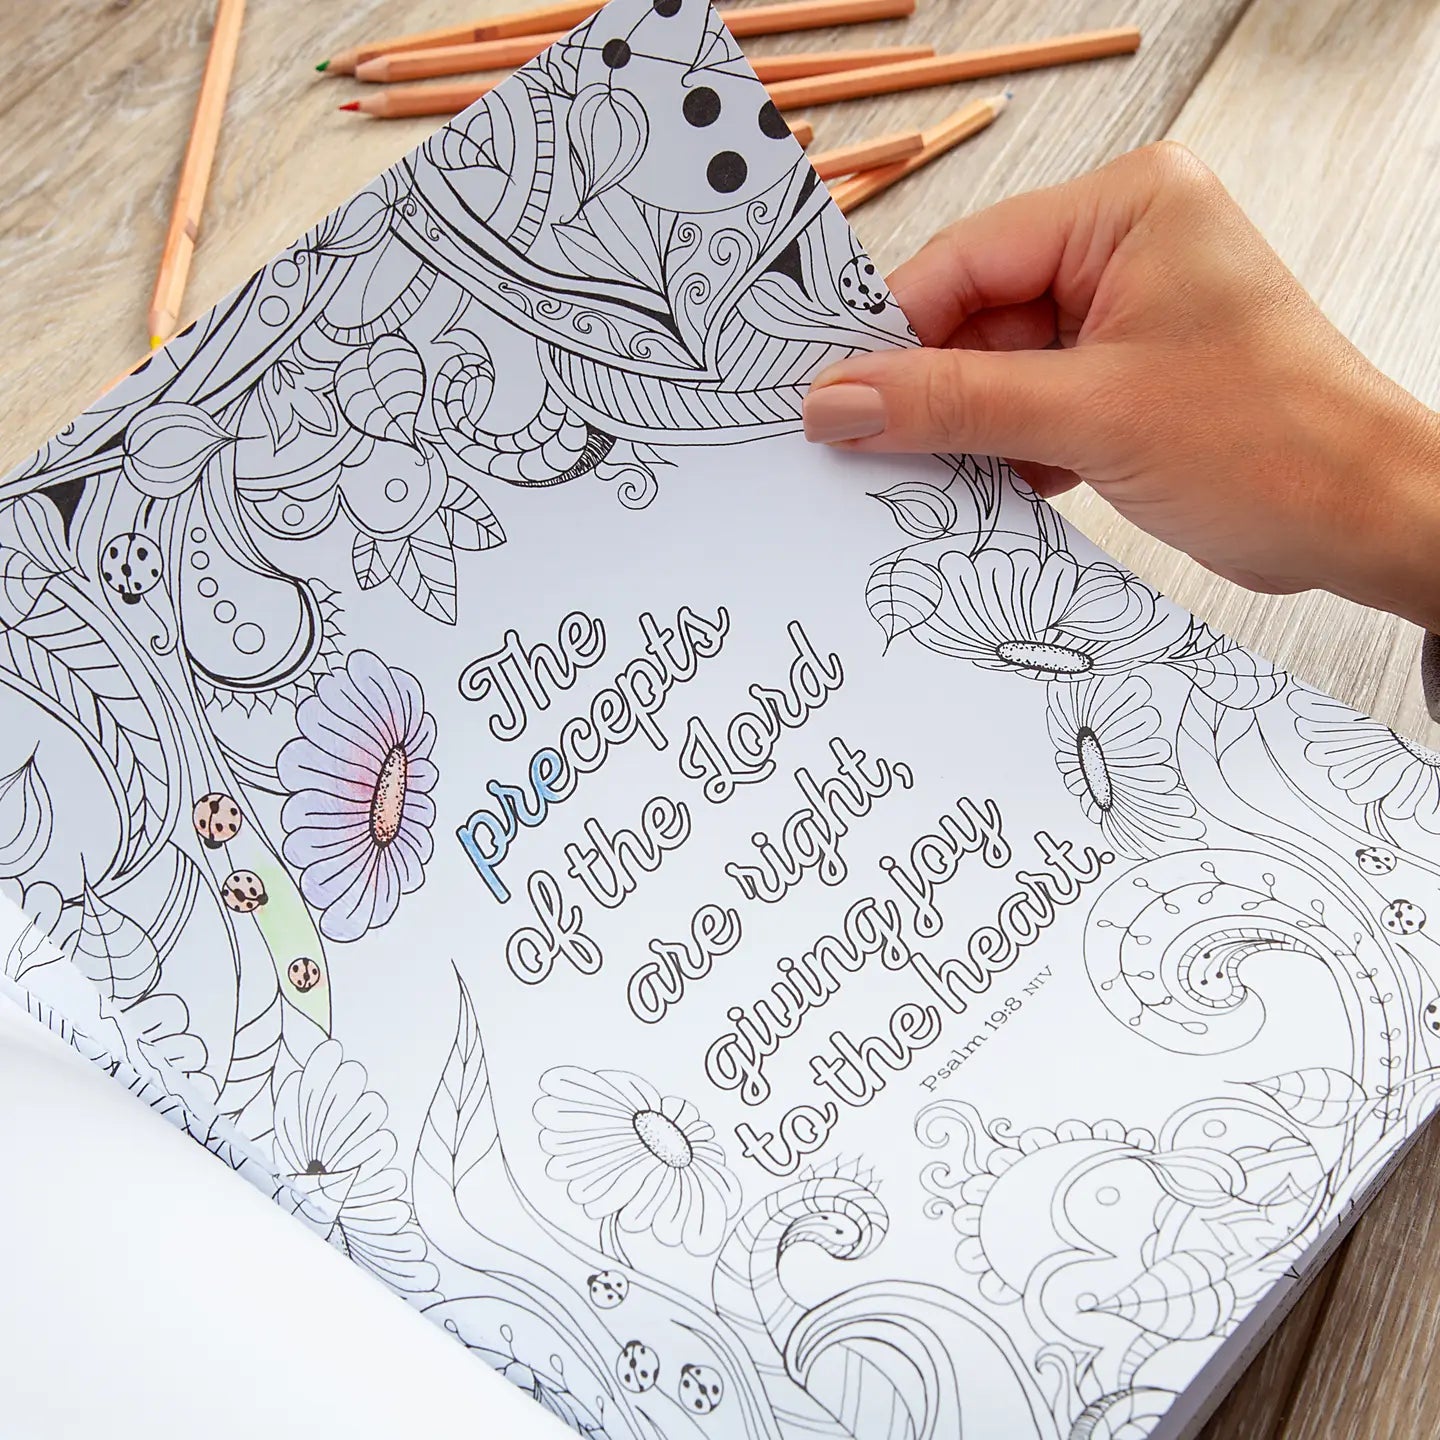 The
precepts
of the Lord
are right,
giving joy
to the heart.
Psalm 19:8 NIV